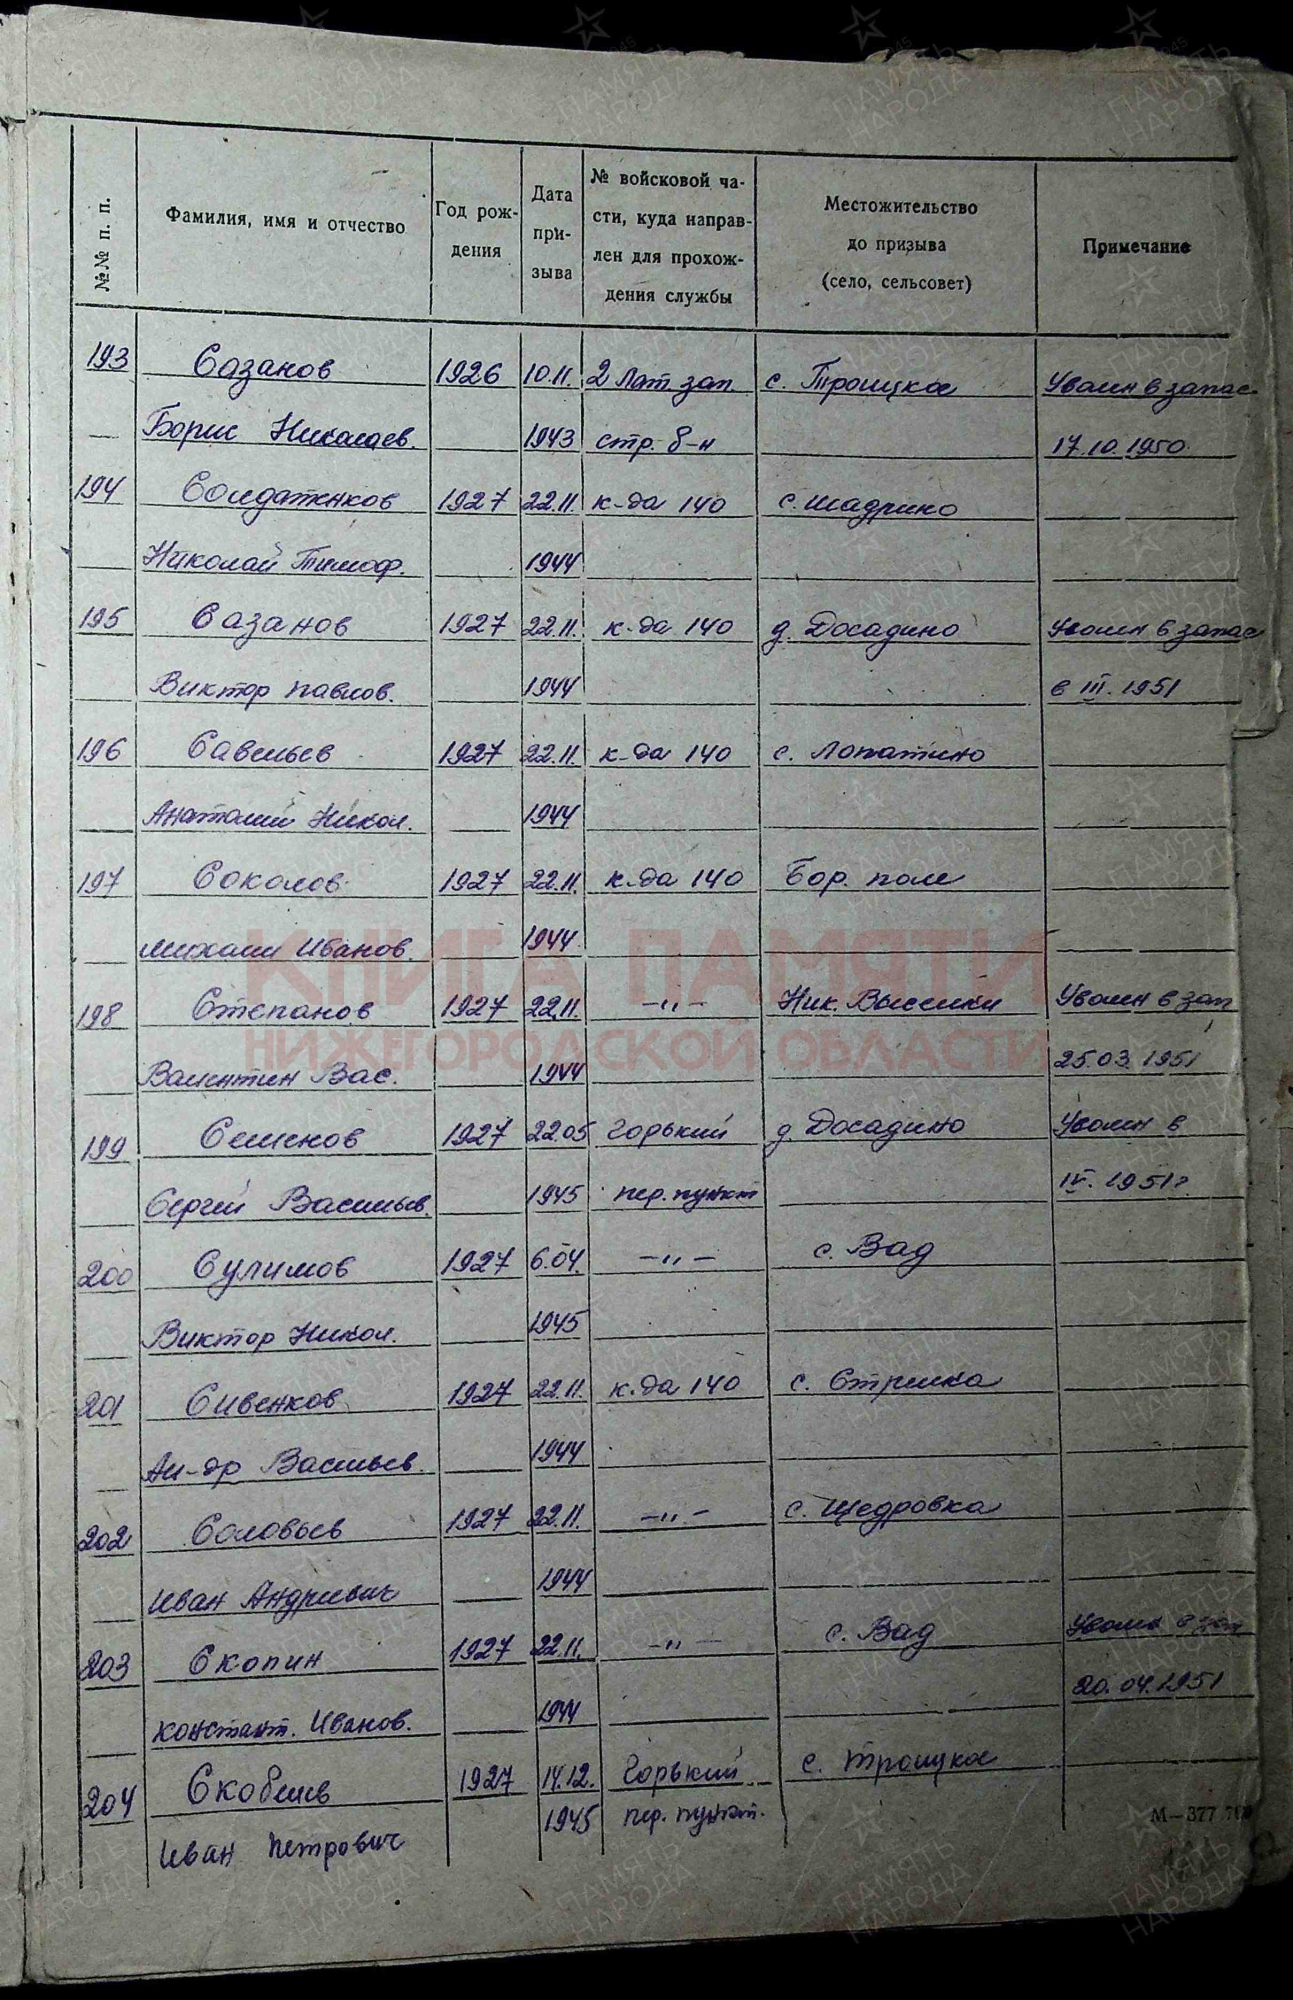 №№ п. п.
Фамилия, имя и отчество
Год рож-
дения
Дата
при-
зыва
№ войсковой ча-
сти, куда направ-
лен для прохож-
дения службы
Местожительство
до призыва
(село, сельсовет)
Примечание
193 Сазанов 1926 10.11. 2 Лат. зап. с. Троицкое Уволен в запас
Борис Николаев. 1943 стр. б-н 17.10.1950.
194 Солдатенков 1927 22.11. к-да 140 с. Шадрино
Николай Тимоф. 1944
195 Сазанов 1927 22.11. к-да 140 д. Досадино Уволен в запас
Виктор Павлов. 1944 в III. 1951
196 Савельев 1927 22.11. к-да 140 с. Лопатино
Анатолий Никол. 1944
197 Соколов 1927 22.11. к-да 140 Бор. поле
Михаил Иванов. 1944
КНИГА ПАМЯТИ
198 Степанов 1927 22.11. -"- Ник. Выселки Уволен в зап
НИЖЕГОРОДСКОЙ ОБЛАСТИ
Валентин Вас. 1944 25.03.1951
199 Семенов 1927 22.05 Горький д Досадино Уволен в
Сергей Васильев. 1945 пер. пункт IV. 1951г
200 Сулимов 1927 6.04. -"- с. Вад
Виктор Никол. 1945
201 Сивенков 1927 22.11. к-да 140 с. Стрелка
Ал-др Васильев. 1944
202 Соловьев 1927 22.11. -"- с. Щедровка
Иван Андреевич 1944
203 Скопин 1927 22.11. -"- с. Вад Уволен в зап
Констант. Иванов. 1944 20.04.1951
204 Скобелев 1927 14.12. Горький с. Троицкое
Иван Петрович 1945 пер. пункт.
М—377
ПАМЯТЬ
НАРОДА